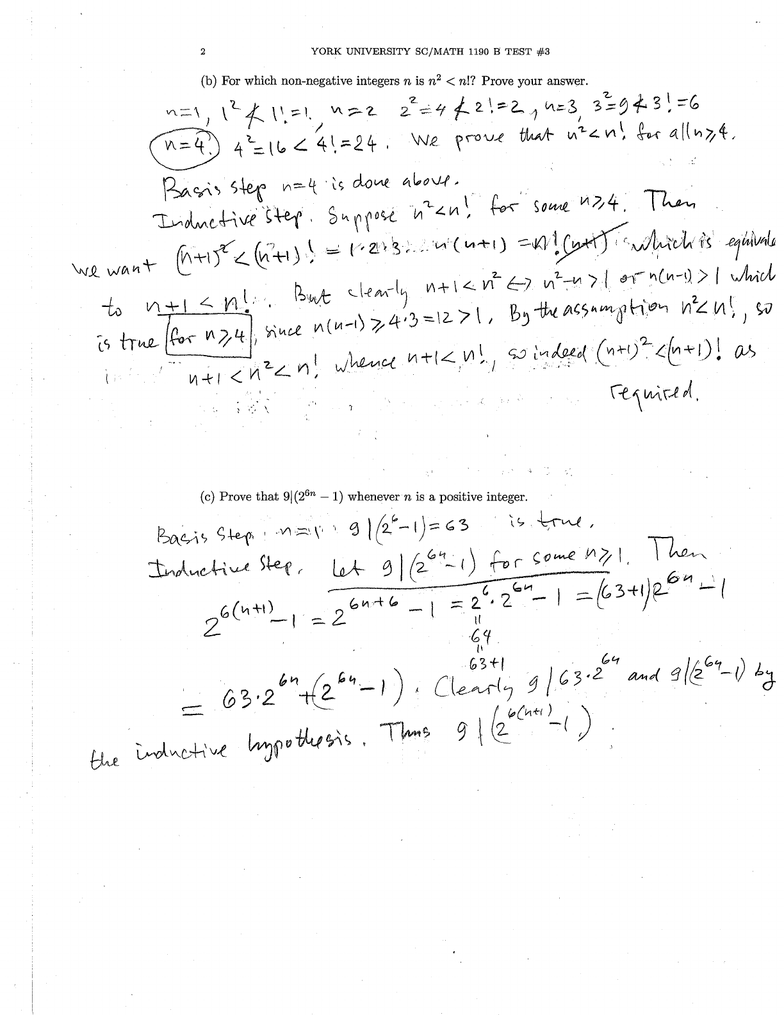 2 YORK UNIVERSITY SC/MATH 1190 B TEST #3
(b) For which non-negative integers n is n² < n!? Prove your answer.
n=1, 1² ≮ 1!=1, n=2 2²=4 ≮ 2!=2, n=3, 3²=9 ≮ 3!=6
n=4: 4²=16 < 4!=24. We prove that n²<n! for all n⩾4.
Basis step n=4 is done above.
Inductive step. Suppose n²<n! for some n⩾4. Then
we want (n+1)² < (n+1)! = 1·2·3... n(n+1) = n!(n+1) which is equivale
to n+1 < n!. But clearly n+1<n² ↔ n²-n>1 or n(n-1)>1 which
is true for n⩾4, since n(n-1)⩾4·3=12>1. By the assumption n²<n!, so
n+1<n²<n! whence n+1<n!, so indeed (n+1)²<(n+1)! as
required.
(c) Prove that 9|(2⁶ⁿ − 1) whenever n is a positive integer.
Basis Step. n=1 9|(2⁶-1)=63 is true.
Inductive Step. Let 9|(2⁶ⁿ-1) for some n⩾1. Then
2⁶⁽ⁿ⁺¹⁾-1 = 2⁶ⁿ⁺⁶-1 = 2⁶·2⁶ⁿ-1 = (63+1)2⁶ⁿ-1
"
64
"
63+1
= 63·2⁶ⁿ+(2⁶ⁿ-1). Clearly 9|63·2⁶ⁿ and 9|(2⁶ⁿ-1) by
the inductive hypothesis. Thus 9|(2⁶⁽ⁿ⁺¹⁾-1)